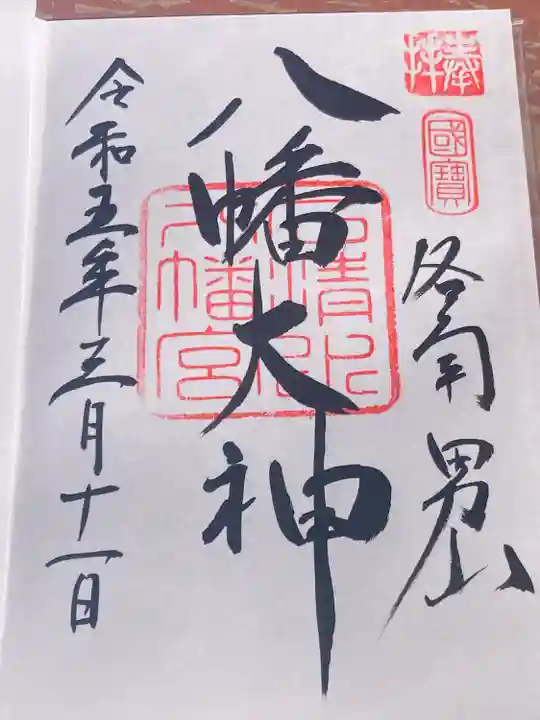 奉拝
國寶
洛南 男山
八幡大神
石清水八幡宮
令和五年三月十一日